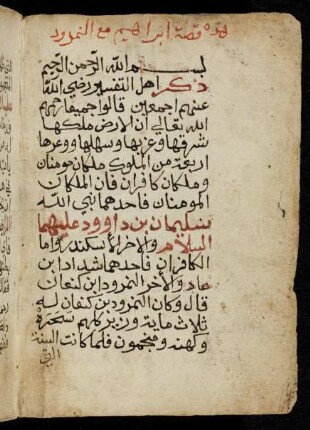 هذه قصة ابراهيم مع النمرود
بسم الله الرحمن الرحيم
ذكر اهل التفسير رضي الله
عنهم اجمعين قالوا جميعا
الله تعالى ان الارض ملكها
شرقها وغربها وسهلها ووعرها
اربعة من الملوك ملكان مومنان
وملكان كافران فان الملكان
المومنان فاحدهما نبي الله
سليمان بن داوود عليهما
السلام والاخر الاسكندر واما
الكافران فاحدهما شداد ابن
عاد والاخر النمرود ابن كنعان
قال وكان النمرود بن كنعان له
ثلاث ماية وزير كلهم سحرة
وكهنه ومنجمون فلما كانت السنة
التي